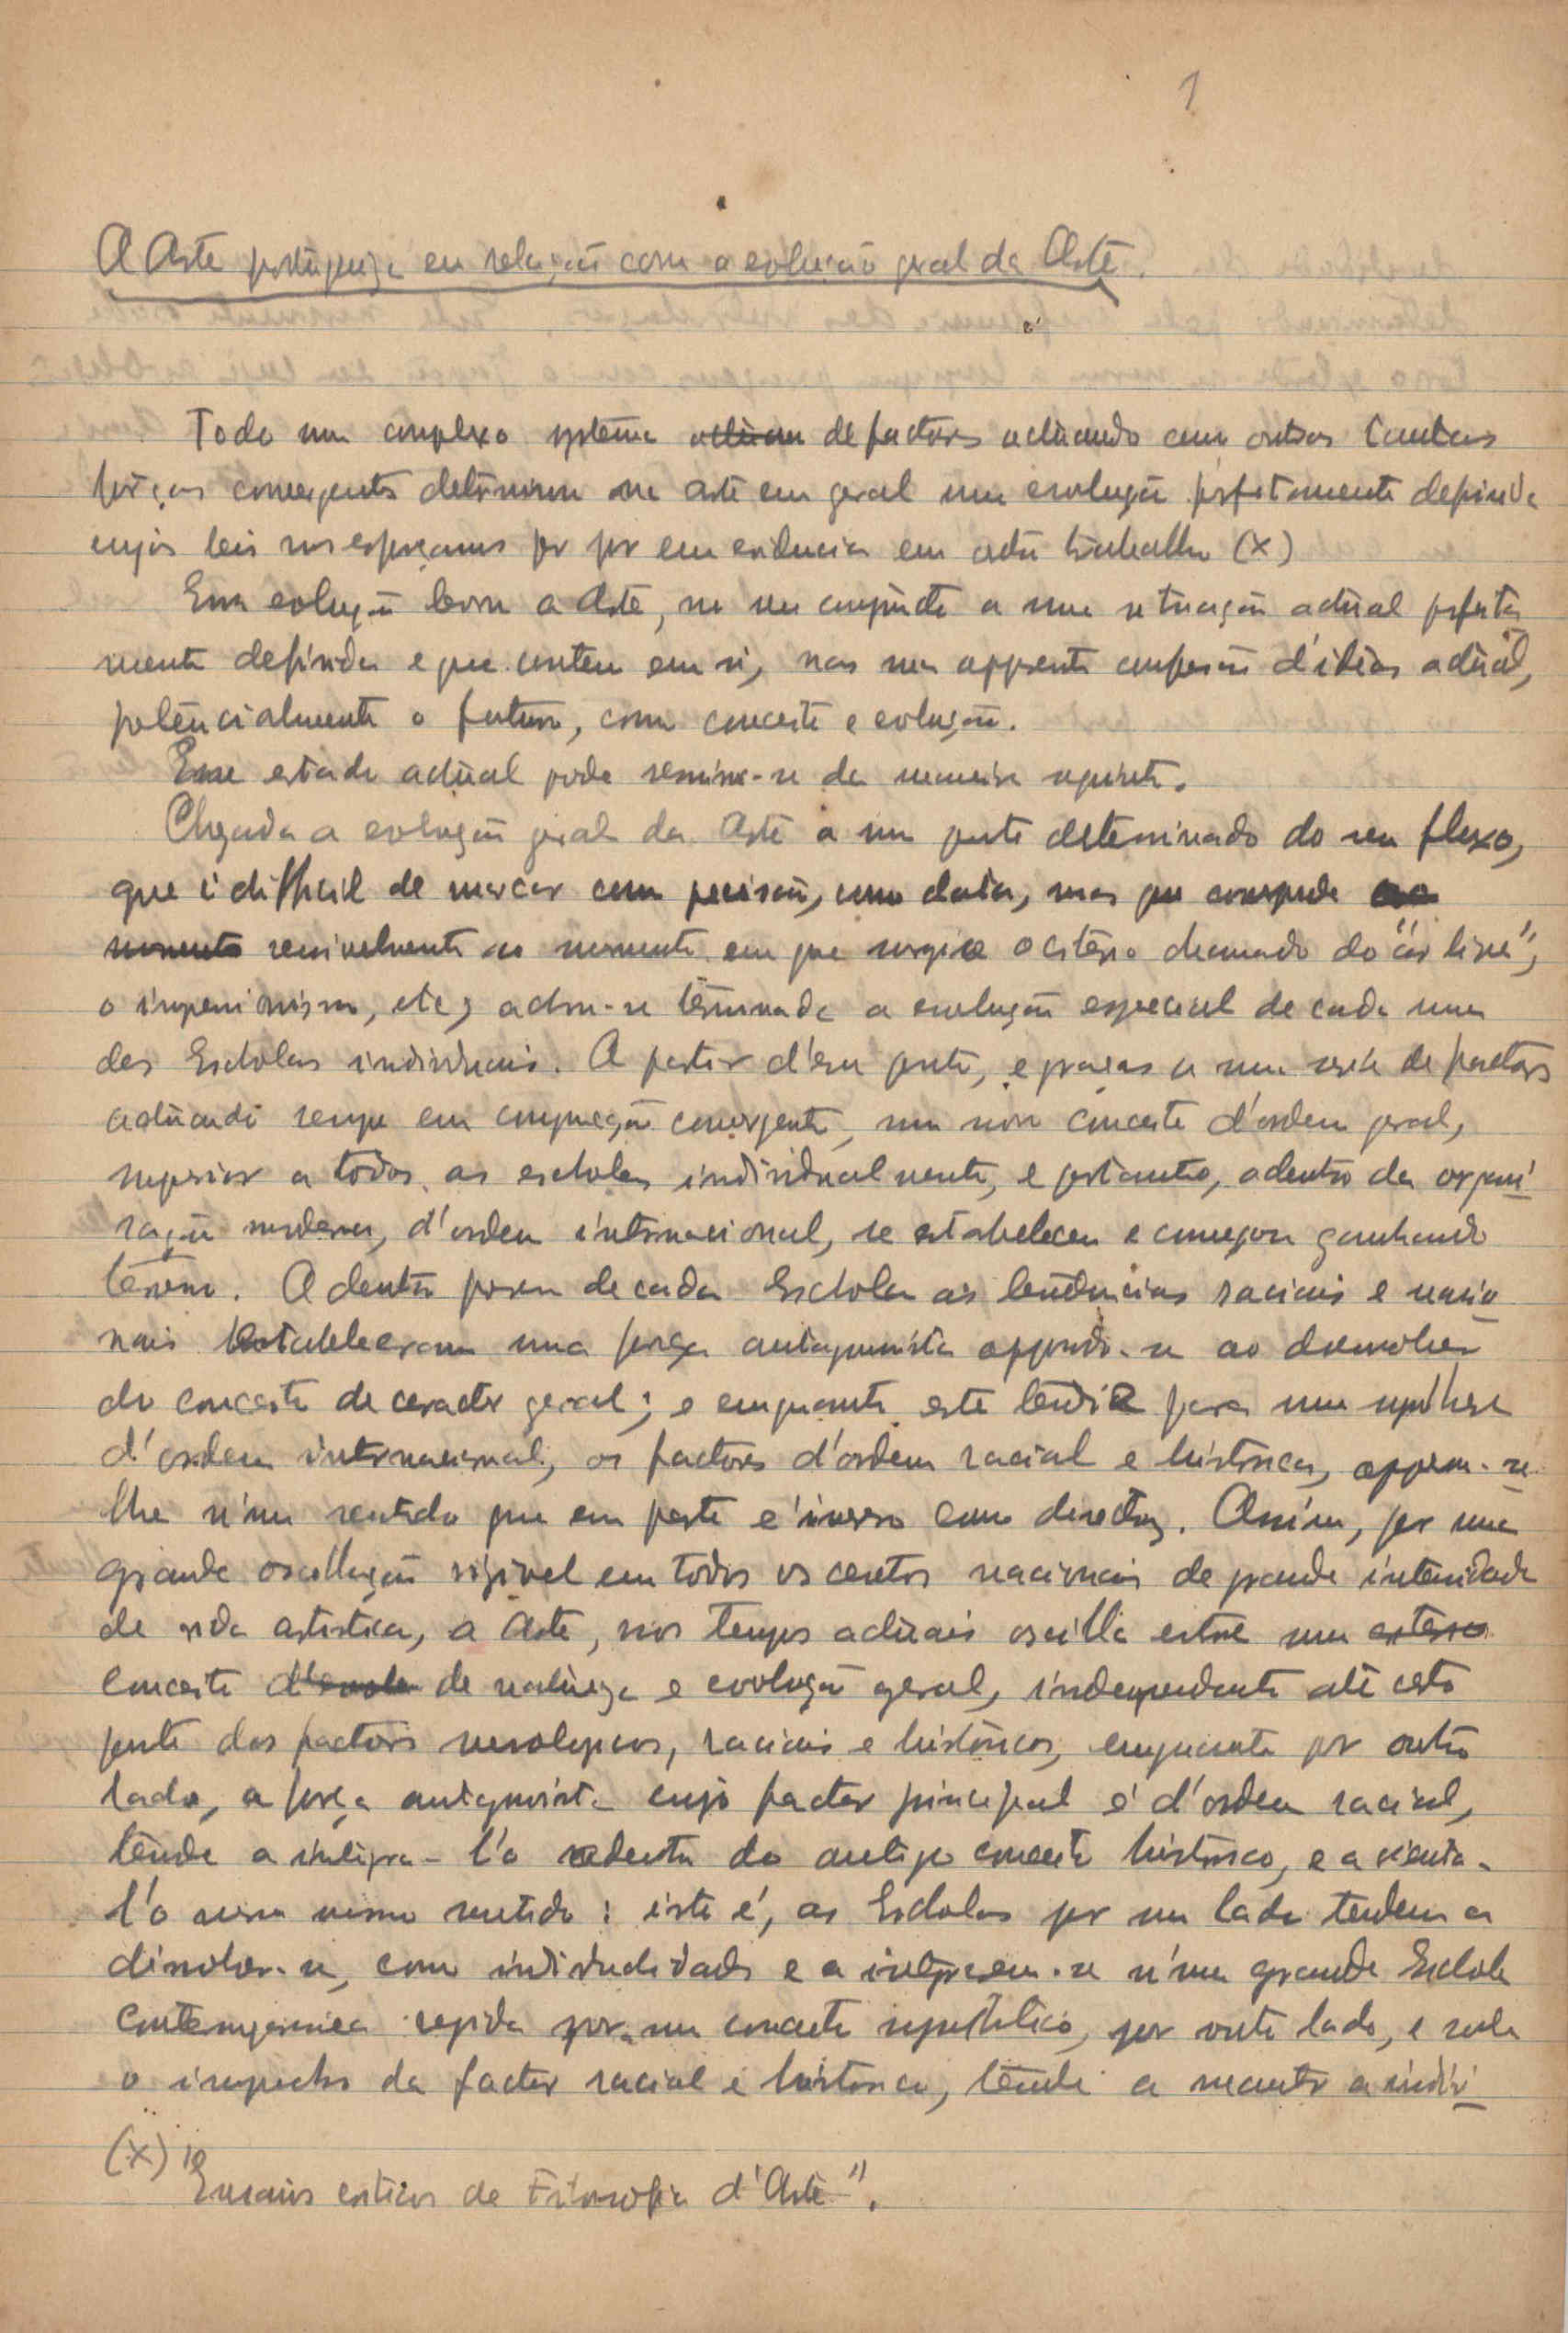 1
A Arte portugueza em relação com a evolução geral da Arte.
Todo um complexo systema actuam de factores actuando como outras tantas
forças convergentes determinam na arte em geral uma evolução perfeitamente definida
cujas leis nos esforçamos por pôr em evidencia em outro trabalho (x)
Essa evolução levou a Arte, no seu conjuncto a uma situação actual perfeita
mente definida e que contem em si, na sua apparente confusão d'ideias actual,
potencialmente o futuro, como conceito e evolução.
Esse estado actual pode resumir-se da maneira seguinte.
Chegada a evolução geral da Arte a um ponto determinado do seu fluxo,
que é difficil de marcar com precisão, como data, mas que corresponde ao
momento sensivelmente ao momento em que surgiu o criterio chamado do "ár livre",
o impressionismo, etc, achou-se terminada a evolução especial de cada uma
das Escholas individuais. A partir d'esse ponto, e graças a uma serie de factores
actuando sempre em conjugação convergente, um novo conceito d'ordem geral,
superior a todas as escholas individualmente, e portanto, adentro da organi
sação moderna, d'ordem internacional, se estabeleceu e começou ganhando
terreno. Adentro porem de cada Eschola as tendencias raciais e nacio
nais estabeleceram uma força antagonista oppondo-se ao desenvolver
do conceito de caracter geral; e emquanto este tendia para uma synthese
d'ordem internacional, os factores d'ordem racial e historica, oppoem-se-
lhe n'um sentido que em parte é inverso como direcção. Assim, por uma
grande oscillação visivel em todos os centros nacionais de grande intensidade
de vida artistica, a Arte, nos tempos actuais oscilla entre um
conceito de natureza e evolução geral, independente até certo
ponto dos factores mesologicos, raciais e historicos, emquanto por outro
lado, a força antagonista cujo factor principal é d'ordem racial,
tende a integra-l'o adentro do antigo conceito historico, e a orienta-
l'o n'esse mesmo sentido: isto é, as Escholas por um lado tendem a
dissolver-se, como individualidades e a integrarem-se n'uma grande Eschola
contemporanea regida por um conceito synthetico, por outro lado, e sob
o impulso do factor racial e historico, tende a manter a indivi
(x) "Ensaios criticos de Filosofia d'Arte".